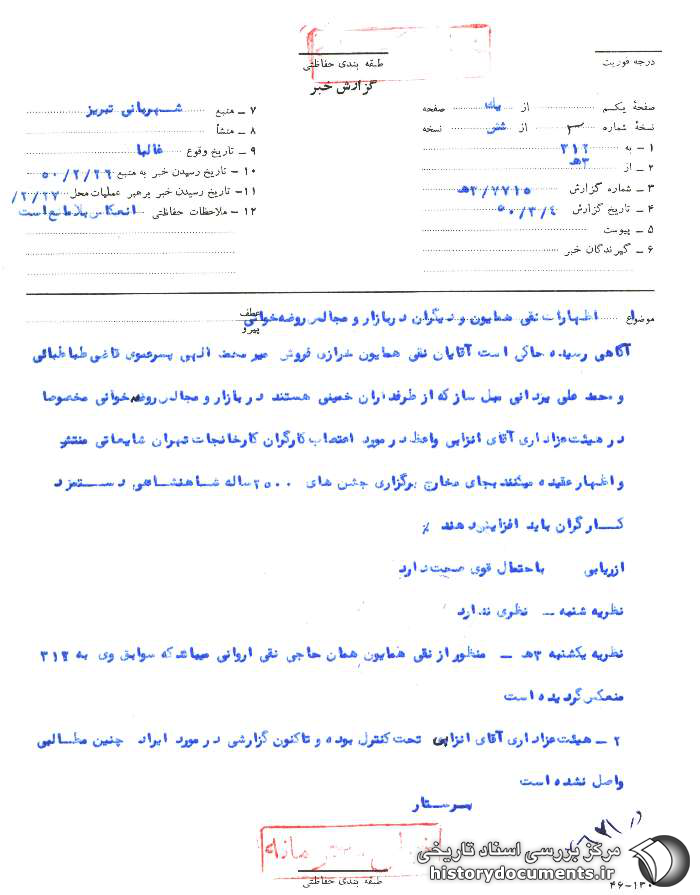 درجه فوریت
طبقه بندی حفاظتی
گزارش خبر
صفحهٔ یکم از یک صفحه
نسخهٔ شماره ۳ از شش نسخه
۱ ــ به ۳۱۲
۲ ــ از ۳هـ
۳ ــ شماره گزارش ۳/۷۷۱۵هـ
۴ ــ تاریخ گزارش ۵۰/۳/۴
۵ ــ پیوست
۶ ــ گیرندگان خبر
۷ ــ منبع شهربانی تبریز
۸ ــ منشأ
۹ ــ تاریخ وقوع غالبا
۱۰ ــ تاریخ رسیدن خبر به منبع ۵۰/۲/۲۶
۱۱ــ تاریخ رسیدن خبر برهبر عملیات محل ۲/۲۷/
۱۲ ــ ملاحظات حفاظتی انعکاس بلامانع است
موضوع اظهارات نقی همایون و دیگران در بازار و مجالس روضه خوانی
عطف
پیرو
آگاهی رسیده حاکی است آقایان نقی همایون خرازی فروش میر محمد الهی پسرعموی قاضی طباطبائی
و محمد علی یزدانی مبل ساز که از طرفداران خمینی هستند در بازار و مجالس روضه خوانی مخصوصا
در هیئت عزاداری آقای انزابی واعظ در مورد اعتصاب کارگران کارخانجات تهران شایعاتی منتشر
و اظهار عقیده میکنند بجای مخارج برگزاری جشن های ۲۵۰۰ ساله شاهنشاهی دستمزد
کارگران باید افزایش دهند ٪
ارزیابی باحتمال قوی صحت دارد
نظریه شنبه ــ نظری ندارد
نظریه یکشنبه ۳هـ ــ منظور از نقی همایون همان حاجی نقی اروانی میباشد که سوابق وی به ۳۱۲
منعکس گردیده است
۲ ــ هیئت عزاداری آقای انزابی تحت کنترل بوده و تاکنون گزارشی در مورد ایراد چنین مطالبی
واصل نشده است
پرستار
خیلی محرمانه
طبقه بندی حفاظتی
مرکز بررسی اسناد تاریخی
historydocuments.ir